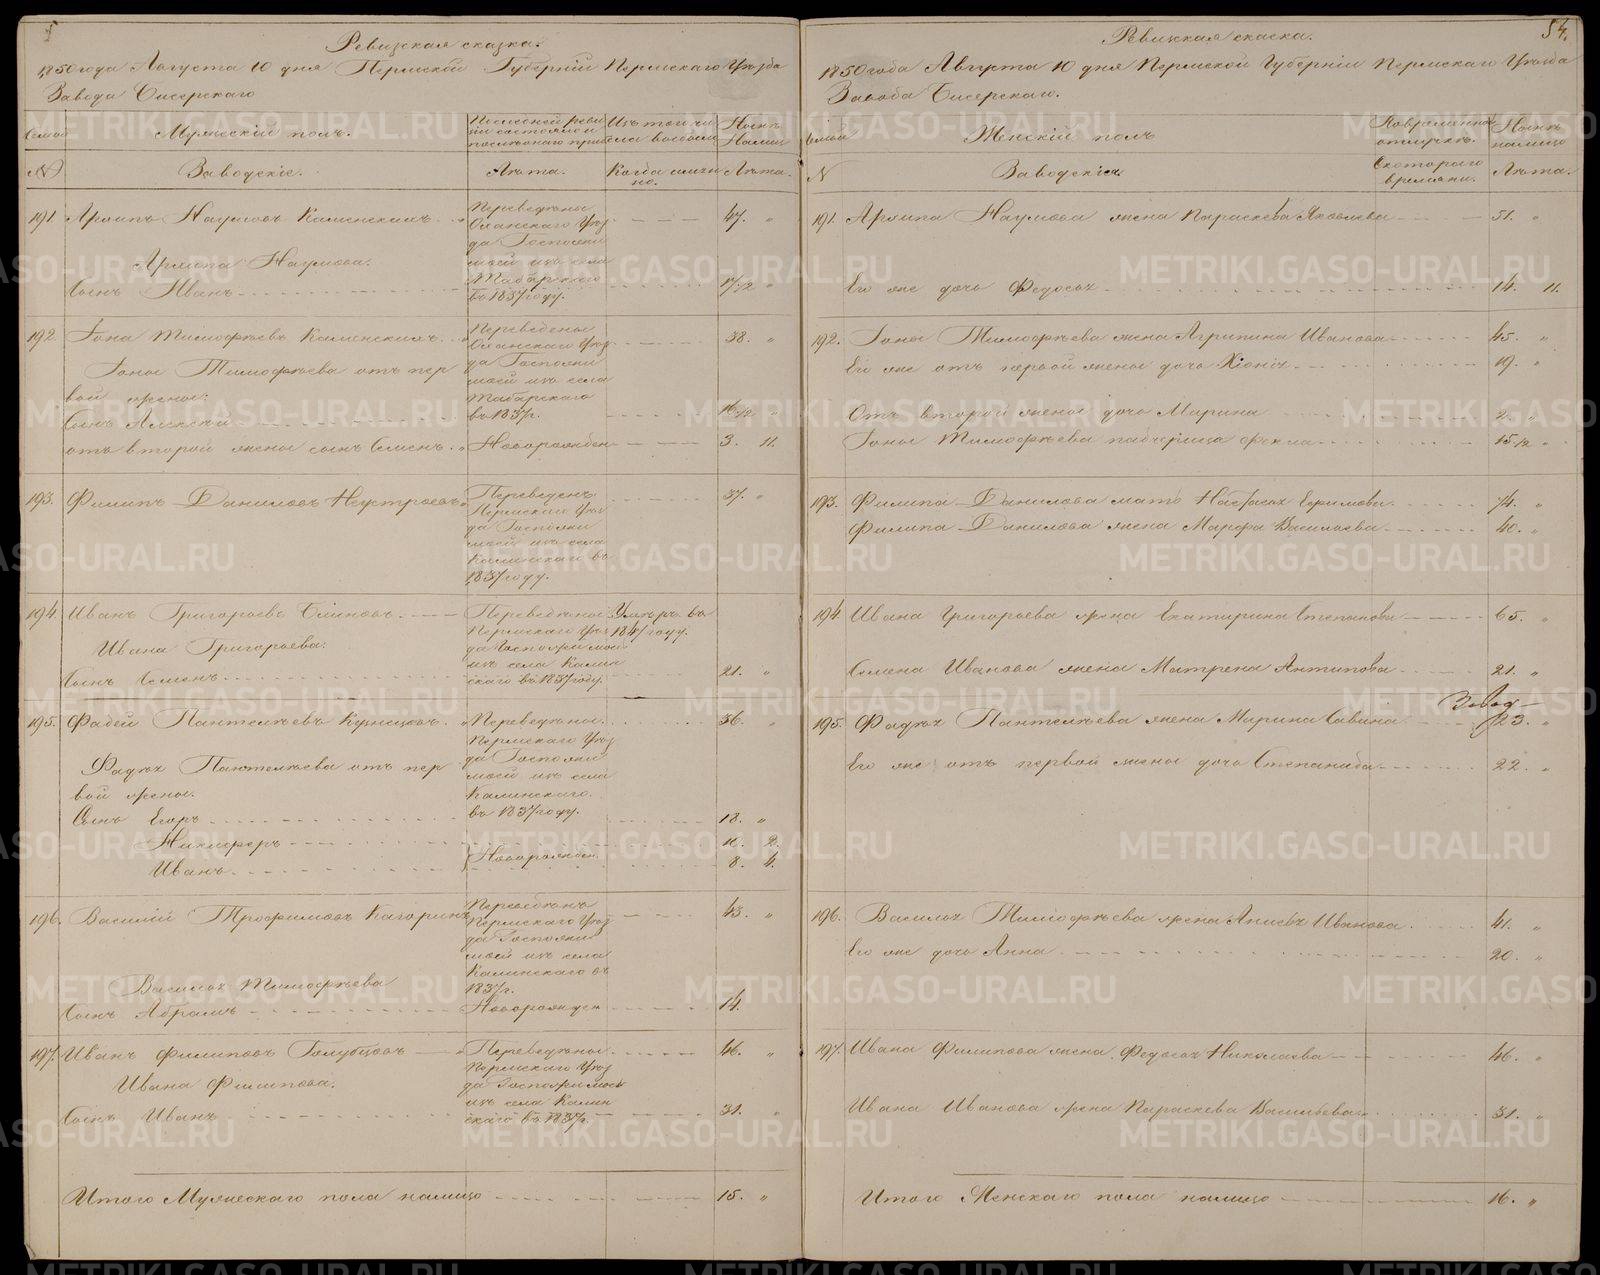 Ревизская сказка.
1850 года Августа 10 дня Пермской Губернiи Пермскаго Уѣзда
Завода Бисерскаго
Мужескiй полъ.
Изъ того числа выбыло
Заводскiе.
Лѣта.
Когда именно.
Лѣта.
191. Архипъ Наумовъ Каменскихъ
Переведены Оханскаго Уѣзда Госпожи моей изъ села Табарскаго въ 1837 году.
47. "
Архипа Наумова.
Сынъ Иванъ
17/12 "
192. Iона Тимофѣевъ Каменскихъ
Переведены Оханскаго Уѣзда Госпожи моей изъ села Табарскаго въ 1837 г.
38. "
Iоны Тимофѣева отъ первой жены:
Сынъ Алексѣй
16/12 "
отъ второй жены сынъ Семенъ
Новорожден
3. 11.
193. Филипъ Даниловъ Неустроевъ
Переведенъ Пермскаго Уѣзда Госпожи моей изъ села Калинскаго въ 1837 году.
37. "
194. Иванъ Григорьевъ Семновъ
Переведены Пермскаго Уѣзда Госпожи моей изъ села Калинскаго въ 1837 году.
Умѣръ въ 1847 году.
Ивана Григорьева:
Сынъ Семенъ
21. "
195. Фадей Пантелѣевъ Кузнецовъ
Переведены Пермскаго Уѣзда Госпожи моей изъ села Калинскаго въ 1837 году.
56. "
Фадѣя Пантелѣева отъ первой жены.
Сынъ Егоръ
18. "
Никиферъ
10. 2.
Иванъ
Новорожден.
8. 4.
196. Василiй Трофимовъ Кагоринъ
Переведенъ Пермскаго Уѣзда Госпожи моей изъ села Калинскаго въ 1837 г.
43. "
Василья Тимофѣева
Сынъ Абрамъ
Новорожден
14.
197. Иванъ Филиповъ Голубцовъ
Переведены Пермскаго Уѣзда Госпожи моей изъ села Калинскаго въ 1837 г.
46. "
Ивана Филипова.
Сынъ Иванъ
31. "
Итого Мужескаго пола налицо
15. "
54.
Ревизская скаска.
1850 года Августа 10 дня Пермской Губернiи Пермскаго Уѣзда
Завода Бисерскаго.
Женскiй полъ
Во временной отлучкѣ.
Нынѣ налицо
N
Заводскiя
Съ котораго времяни.
Лѣта.
191. Архипа Наумова жена Параскева Яковлева
51. "
Его же дочь Федосья
14. 11.
192. Iоны Тимофѣева жена Агрипина Иванова
45. "
Его же отъ первой жены дочь Хiонiя
19. "
Отъ второй жены дочь Марина
2. "
Iоны Тимофѣева падчерица Фекла
15/12 "
193. Филипа Данилова мать Настасья Ефимова
74. "
Филипа Данилова жена Марфа Васильева
40. "
194. Ивана Григорьева жена Екатерина Степанова
65. "
Семена Иванова жена Матрена Антипова
21. "
195. Фадѣя Пантелѣева жена Марина Савина
23. "
Его же отъ первой жены дочь Степанида
22. "
196. Василья Тимофѣева жена Анисья Иванова
41. "
Его же дочь Анна
20. "
197. Ивана Филипова жена Федосья Николаева
46. "
Ивана Иванова жена Параскева Васильева
31. "
Итого Женскаго пола налицо
16. "
METRIKI.GASO-URAL.RU